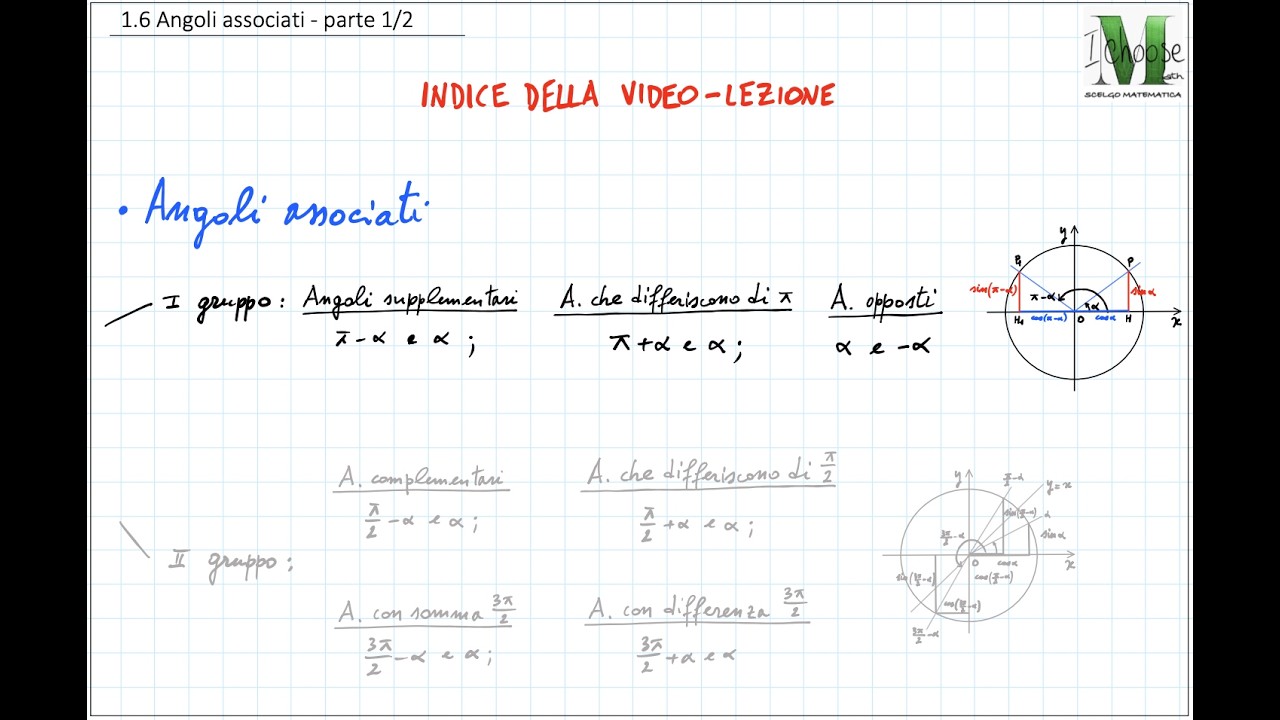 1.6 Angoli associati - parte 1/2
I Choose Math
SCELGO MATEMATICA
INDICE DELLA VIDEO-LEZIONE
• Angoli associati
I gruppo: Angoli supplementari A. che differiscono di π A. opposti
π-α e α; π+α e α; α e -α
y
P₁ P
sin(π-α) π-α α sin α
H₁ cos(π-α) O cos α H x
A. complementari A. che differiscono di π/2
π/2 - α e α; π/2 + α e α;
II gruppo:
A. con somma 3π/2 A. con differenza 3π/2
3π/2 - α e α; 3π/2 + α e α
y π/2-α y=x
sin(π/2-α) α
3π/2-α sin α
O cos α x
sin(3π/2-α) cos(π/2-α)
cos(3π/2-α)
3π/2-α